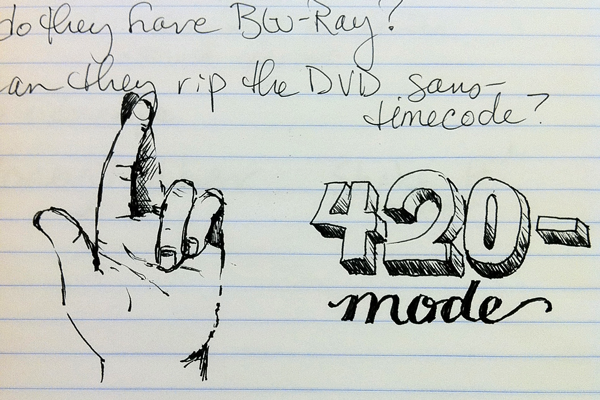 do they have Blu-Ray?
can they rip the DVD sans-
timecode?
420-
mode